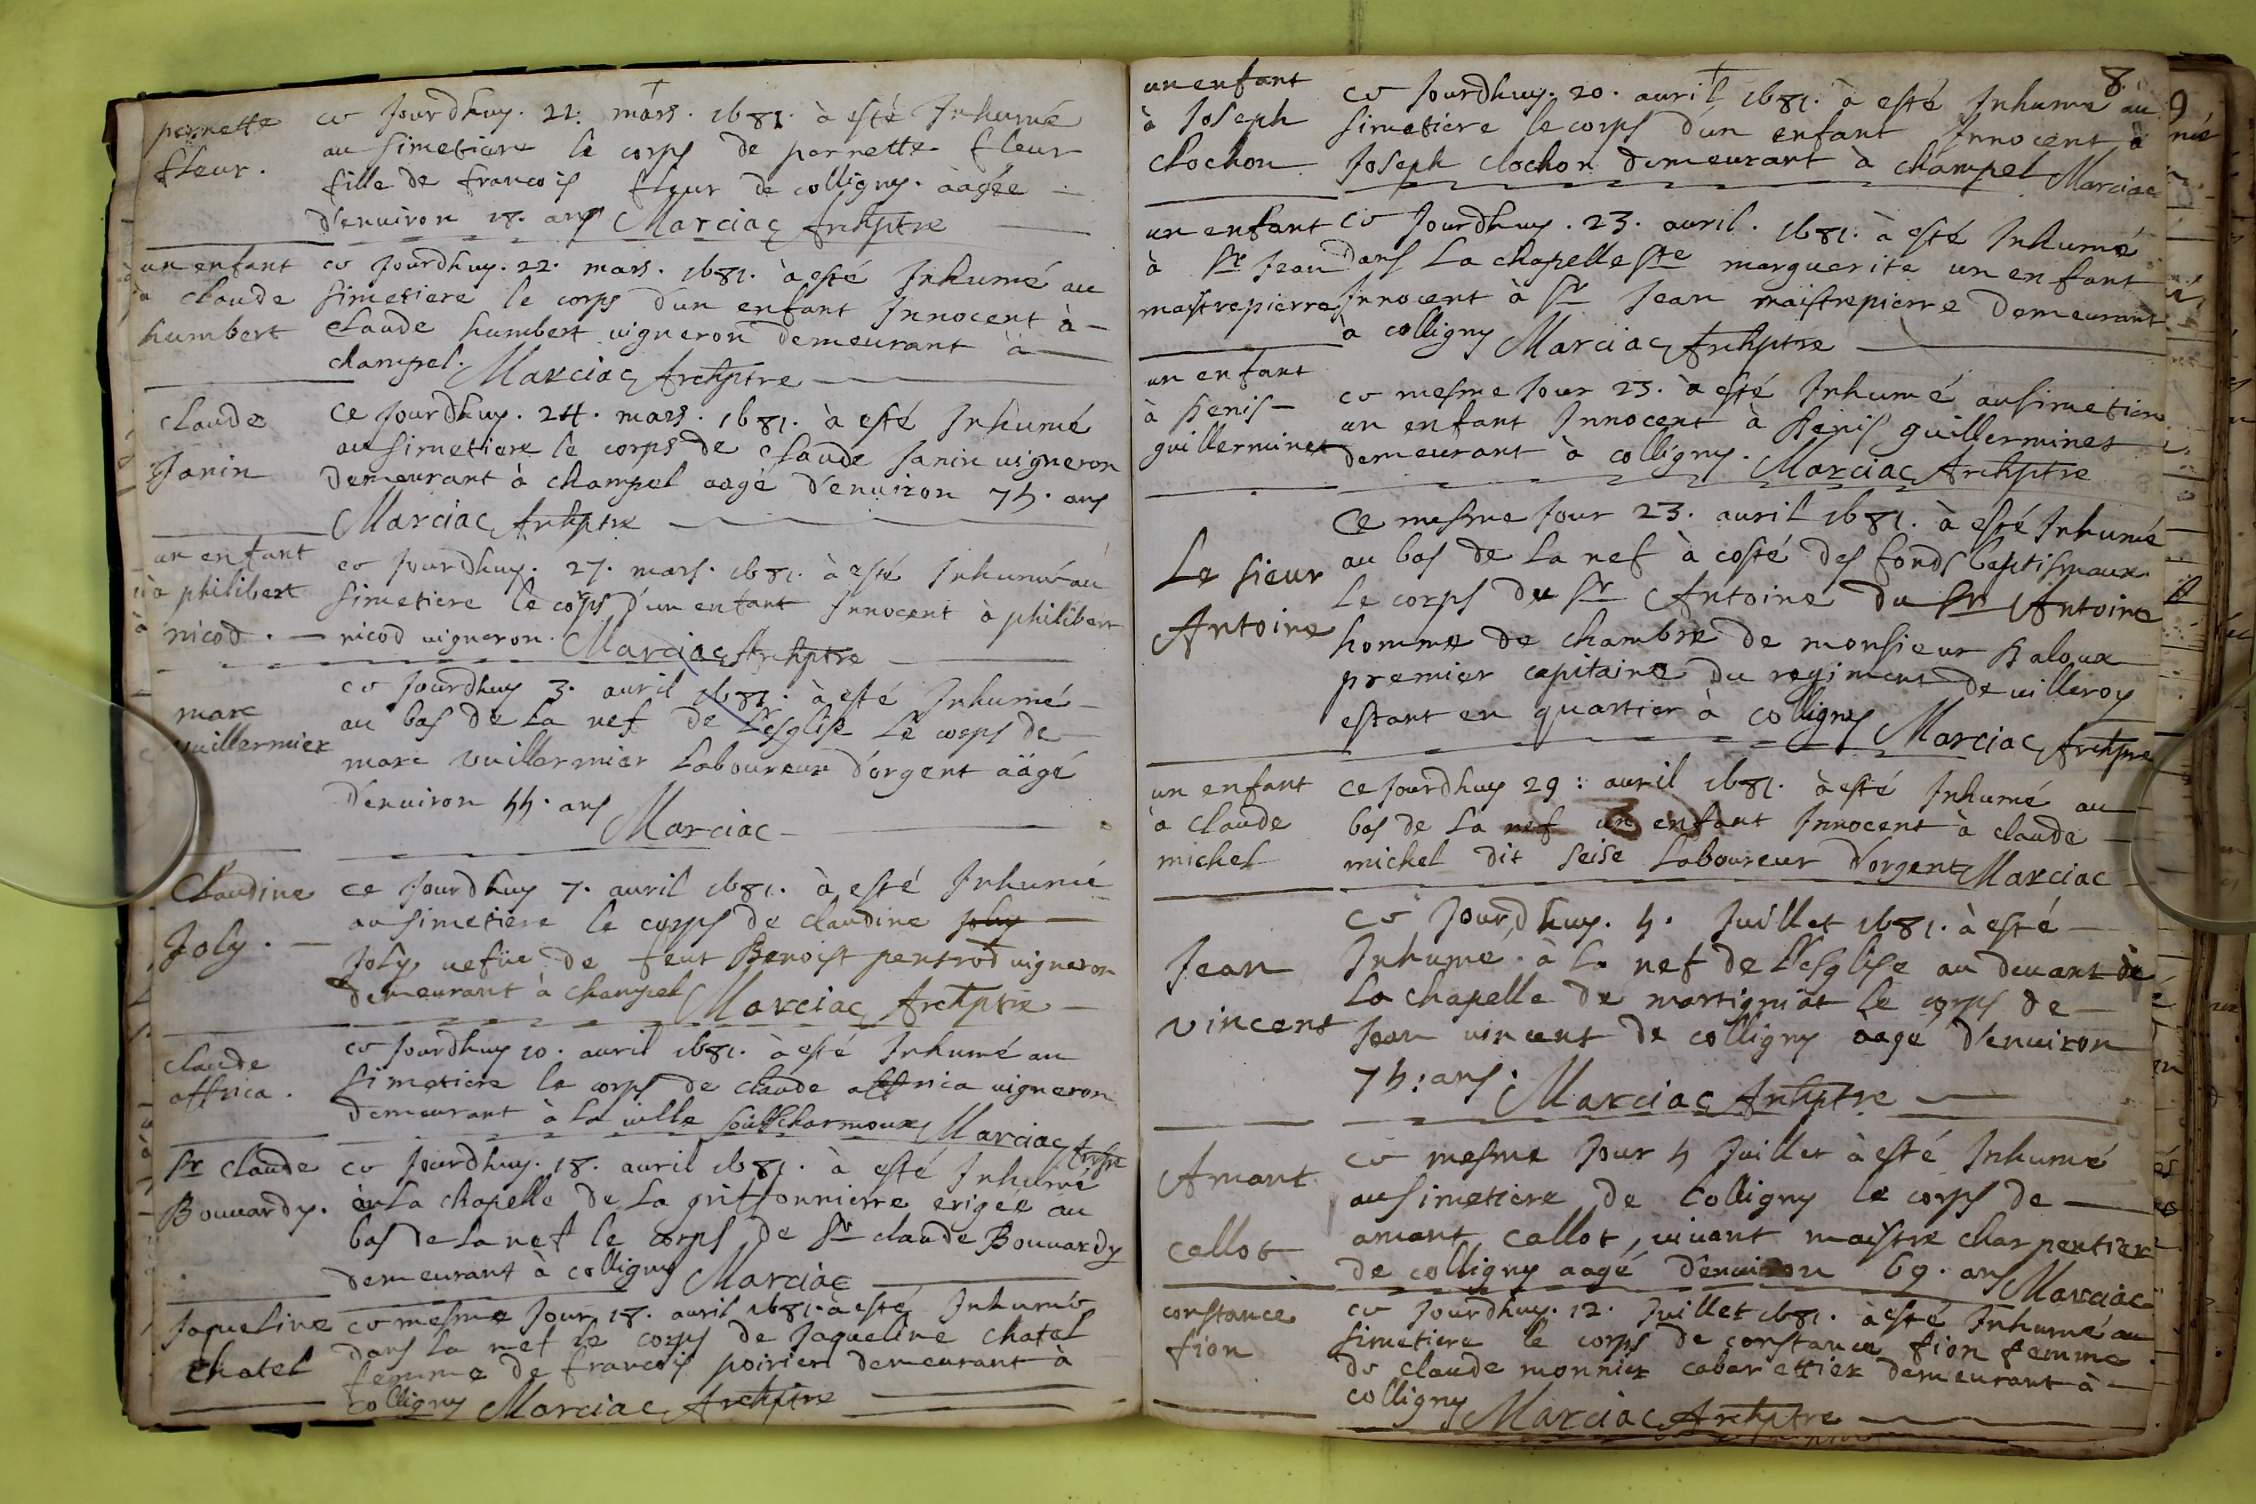 pernette
fleur.
ce Jourdhuy. 21. mars. 1681. à esté Inhumé
au simetiere le corps de pernette fleur
fille de francois fleur de colligny. aagée
d'enuiron 18. ans Marciac Archptre
un enfant
à claude
humbert
ce Jourdhuy. 22. mars. 1681. à esté Inhumé au
simetiere le corps d'un enfant Innocent à
claude humbert uigneron demeurant à
champel. Marciac Archptre
claude
Janin
Ce Jourdhuy. 24. mars. 1681. à esté Inhumé
au simetiere le corps de claude Janin uigneron
demeurant à champel aagé d'enuiron 75. ans
Marciac Archptre
un enfant
à philibert
nicod.
ce Jourdhuy. 27. mars. 1681. à esté Inhumé au
simetiere le corps d'un enfant Innocent à philibert
nicod uigneron. Marciac Archptre
marc
vuillermier
ce Jourdhuy 3. auril 1681. à esté Inhumé
au bas de la nef de L'esglise Le corps de
marc vuillermier Laboureur d'orgent aagé
d'enuiron 55. ans Marciac
Claudine
Joly.
ce Jourdhuy 7. auril 1681. à esté Inhumé
au simetiere le corps de claudine Joly
Joly uefue de feut Benoist uigneron
demeurant à champel Marciac Archptre
claude
affrica.
ce Jourdhuy 10. auril 1681. à esté Inhumé au
simetiere le corps de claude affrica uigneron
demeurant à la uille soubs Charmoux Marciac Archptre
Sr claude
Bouuardy.
ce Jourdhuy. 18. auril 1681. à esté Inhumé
à La chapelle de La griffonnierre erigée au
bas de La nef le corps de Sr claude Bouuardy
demeurant à colligny Marciac
Jaqueline
chatel
ce mesme Jour 18. auril 1681. à esté Inhumé
dans La nef le corps de Jaqueline chatel
femme de francois poirier demeurant à
colligny Marciac Archptre
8
un enfant
à Joseph
clochon
ce Jourdhuy. 20. auril 1681. à esté Inhumé au
simetiere le corps d'un enfant Innocent à
Joseph clochon demeurant à champel Marciac
un enfant
à Sr Jean
maistrepierre
ce Jourdhuy. 23. auril. 1681. à esté Inhumé
dans La chapelle Ste marguerite un enfant
Innocent à Sr Jean maistrepierre demeurant
à colligny Marciac Archptre
un enfant
à Denis
guillerminet
ce mesme Jour 23. à esté Inhumé au simetiere
un enfant Innocent à Denis guillerminet
demeurant à colligny. Marciac Archptre
Le sieur
Antoine
Ce mesme Jour 23. auril 1681. à esté Inhumé
au bas de La nef à costé des fonds baptismaux
Le corps du Sr Antoine du Sr Antoine
homme de chambre de monsieur Daloux
premier capitaine du regiment de uilleroy
estant en quartier à colligny Marciac Archptre
un enfant
à claude
michel
ce Jourdhuy 29: auril 1681. à esté Inhumé au
bas de La nef un enfant Innocent à claude
michel dit seise Laboureur d'orgent Marciac
Jean
vincent
ce Jourdhuy. 5. Juillet 1681. à esté
Inhumé à La nef de L'esglise au deuant de
La chapelle de martigniat Le corps de
Jean vincent de colligny aagé d'enuiron
75: ans. Marciac Archptre
Amant
callot
ce mesme Jour 5 Juillet à esté Inhumé
au simetiere de Colligny le corps de
amant callot, uiuant maistre charpentier
de colligny aagé d'enuiron 69. ans Marciac
constance
fion
ce Jourdhuy. 12. Juillet 1681. à esté Inhumé au
simetiere le corps de constance fion femme
de claude monnier cabarettier demeurant à
colligny Marciac Archptre
9